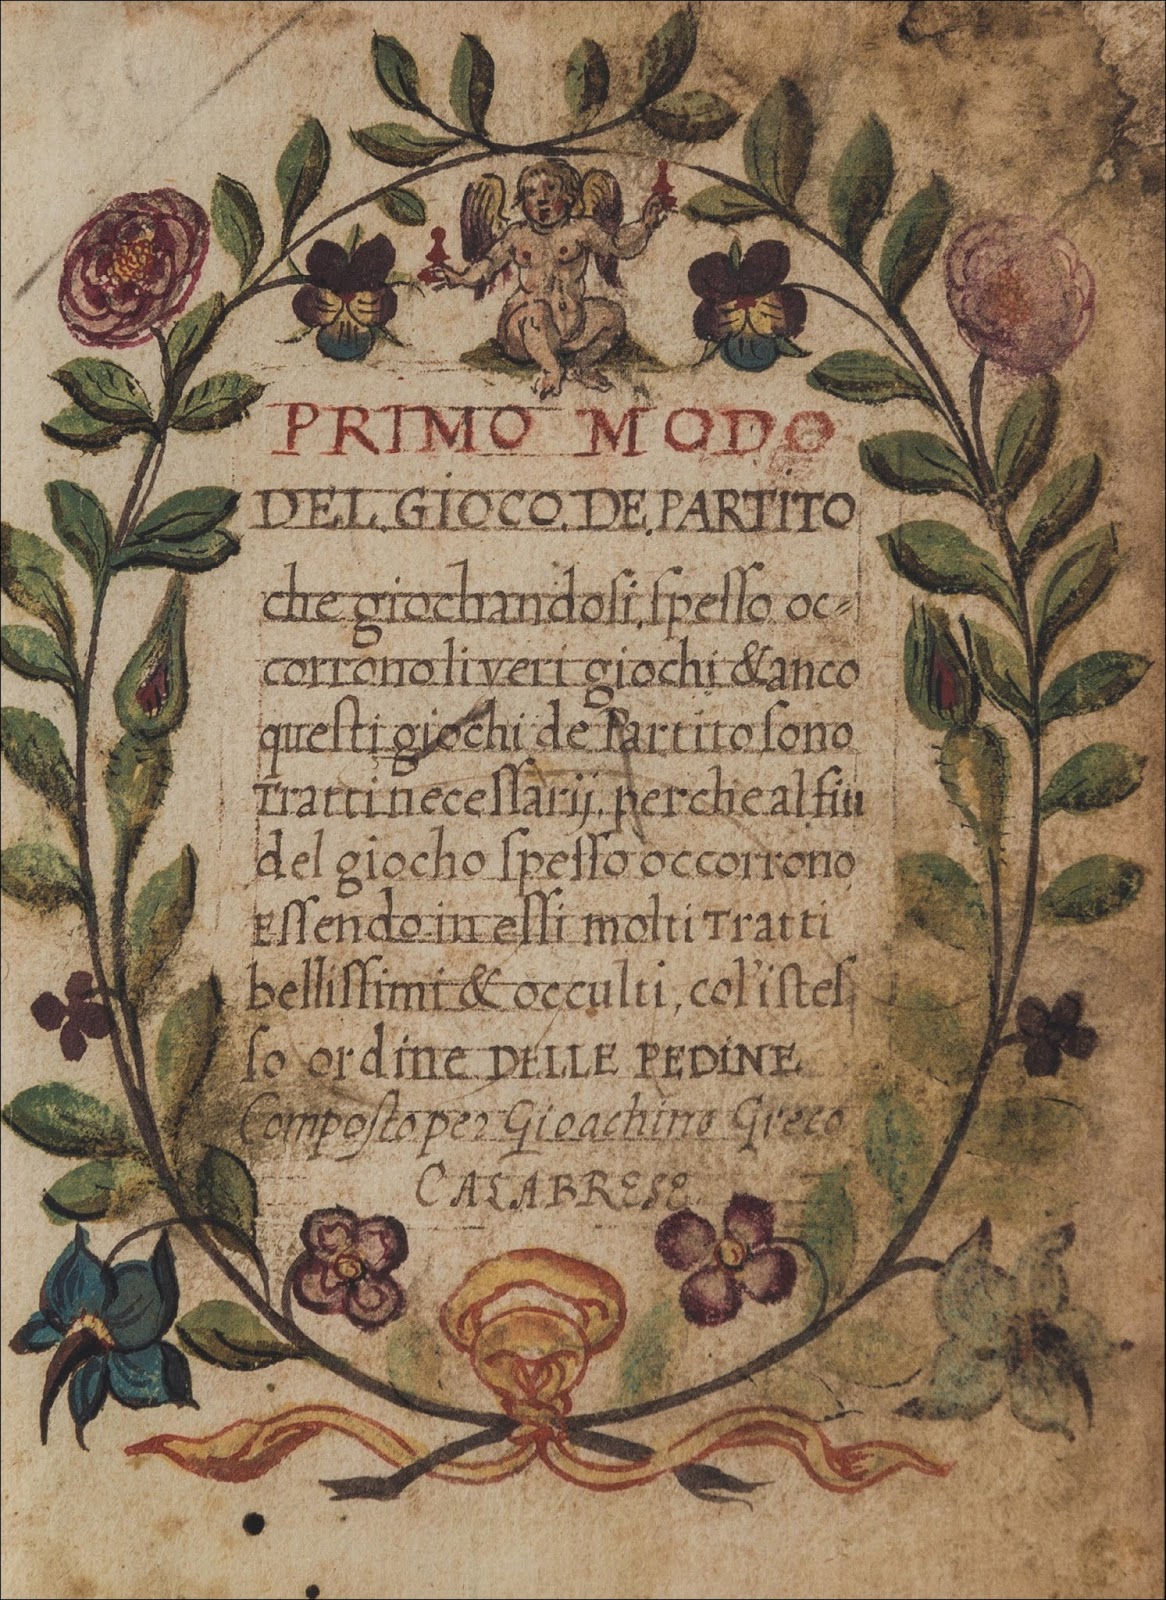 PRIMO MODO
DEL.GIOCO.DE.PARTITO
che giochandosi, speſſo oc=
corrono li veri giochi & anco
queſti giochi de Partito sono
Tratti neceſſarij. perche al fin
del giocho ſpeſſo occorrono
Eſſendo in eſſi molti Tratti
belliſſimi & occulti, col'isteſ
ſo ordine DELLE PEDINE
Compoſto per Gioachino Greco
CALABRESE